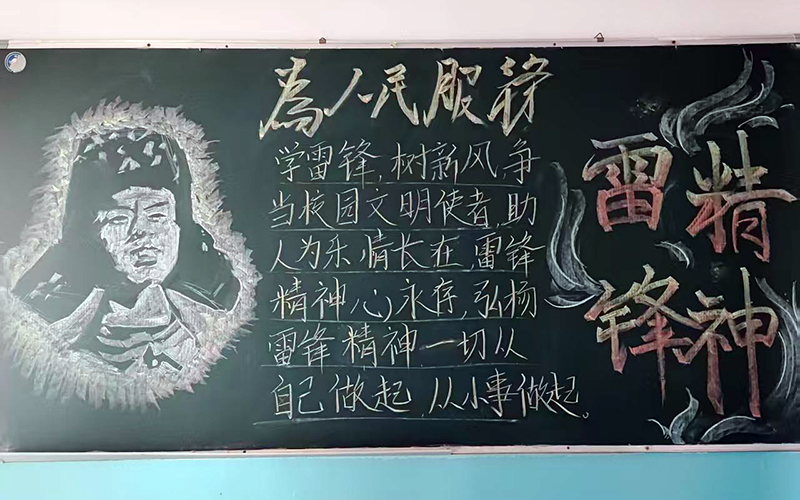 為人民服務
学雷锋,树新风,争
当校园文明使者,助
人为乐情长在,雷锋
精神心永存,弘杨
雷锋精神一切从
自己做起,从小事做起。
雷锋
精神